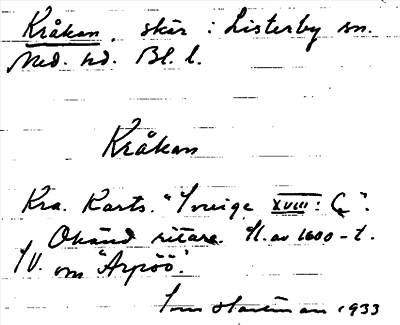 Kråkan, skär i Listerby sn.
Med. hd. Bl. l.
Kråkan
Kra. Karts. "Sverige XVIII: C".
Okänd ritare. Sl. av 1600-t.
SV. om "Arpöö".
Hartman 1933